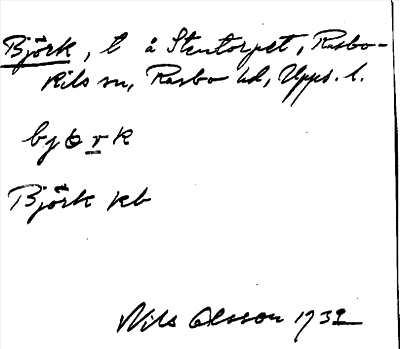 Björk, t å Stentorpet, Rasbo-
Kils sn, Rasbo hd, Upps. l.
bjɵrk
Björk kb
Nils Olsson 1932